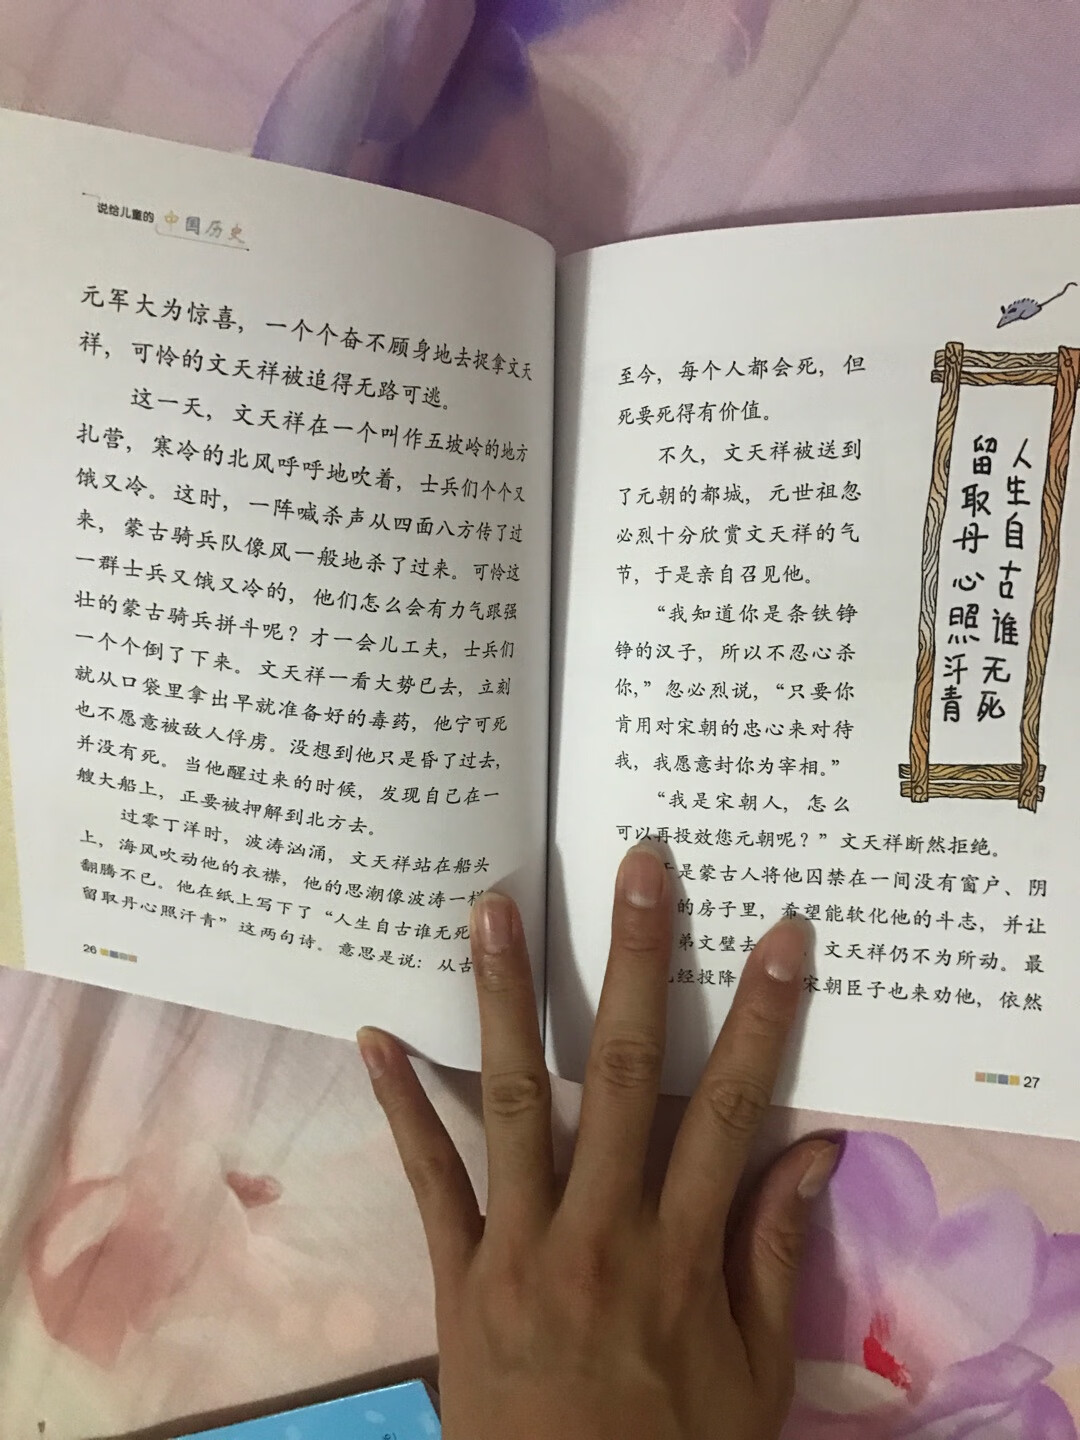 说给儿童的 中国历史
元军大为惊喜，一个个奋不顾身地去捉拿文天
祥，可怜的文天祥被追得无路可逃。
这一天，文天祥在一个叫作五坡岭的地方
扎营，寒冷的北风呼呼地吹着，士兵们个个又
饿又冷。这时，一阵喊杀声从四面八方传了过
来，蒙古骑兵队像风一般地杀了过来。可怜这
一群士兵又饿又冷的，他们怎么会有力气跟强
壮的蒙古骑兵拼斗呢？才一会儿工夫，士兵们
一个个倒了下来。文天祥一看大势已去，立刻
就从口袋里拿出早就准备好的毒药，他宁可死
也不愿意被敌人俘虏。没想到他只是昏了过去，
并没有死。当他醒过来的时候，发现自己在一
艘大船上，正要被押解到北方去。
过零丁洋时，波涛汹涌，文天祥站在船头
上，海风吹动他的衣襟，他的思潮像波涛一样
翻腾不已。他在纸上写下了“人生自古谁无死
留取丹心照汗青”这两句诗。意思是说：从古
26
至今，每个人都会死，但
死要死得有价值。
不久，文天祥被送到
了元朝的都城，元世祖忽
必烈十分欣赏文天祥的气
节，于是亲自召见他。
“我知道你是条铁铮
铮的汉子，所以不忍心杀
你，”忽必烈说，“只要你
肯用对宋朝的忠心来对待
我，我愿意封你为宰相。”
“我是宋朝人，怎么
可以再投效您元朝呢？”文天祥断然拒绝。
是蒙古人将他囚禁在一间没有窗户、阴
的房子里，希望能软化他的斗志，并让
弟文璧去，文天祥仍不为所动。最
经投降宋朝臣子也来劝他，依然
人生自古谁无死
留取丹心照汗青
27